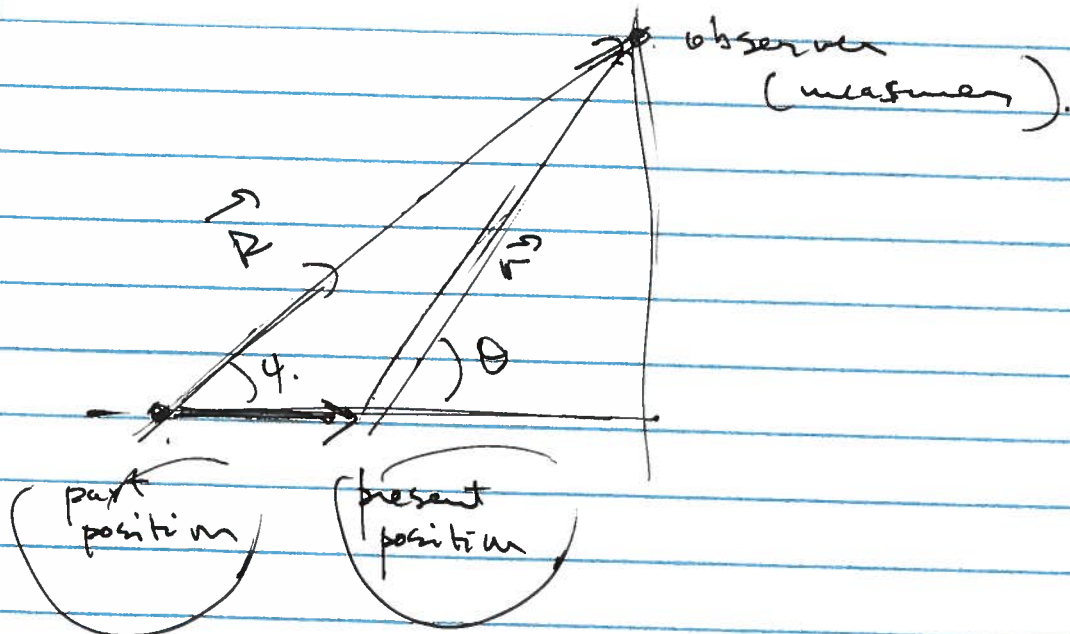 observer
(measurer).
R
r
ψ.
θ
past
position
present
position